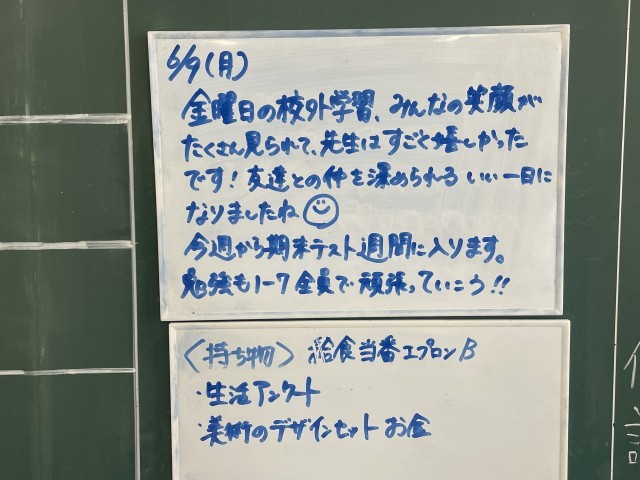 6/9(月)
金曜日の校外学習、みんなの笑顔が
たくさん見られて、先生はすごく嬉しかった
です!友達との仲を深められるいい一日に
なりましたね
今週から期末テスト週間に入ります。
勉強も1-7全員で頑張っていこう!!
〈持ち物〉 給食当番エプロンB
・生活アンケート
・美術のデザインセットお金